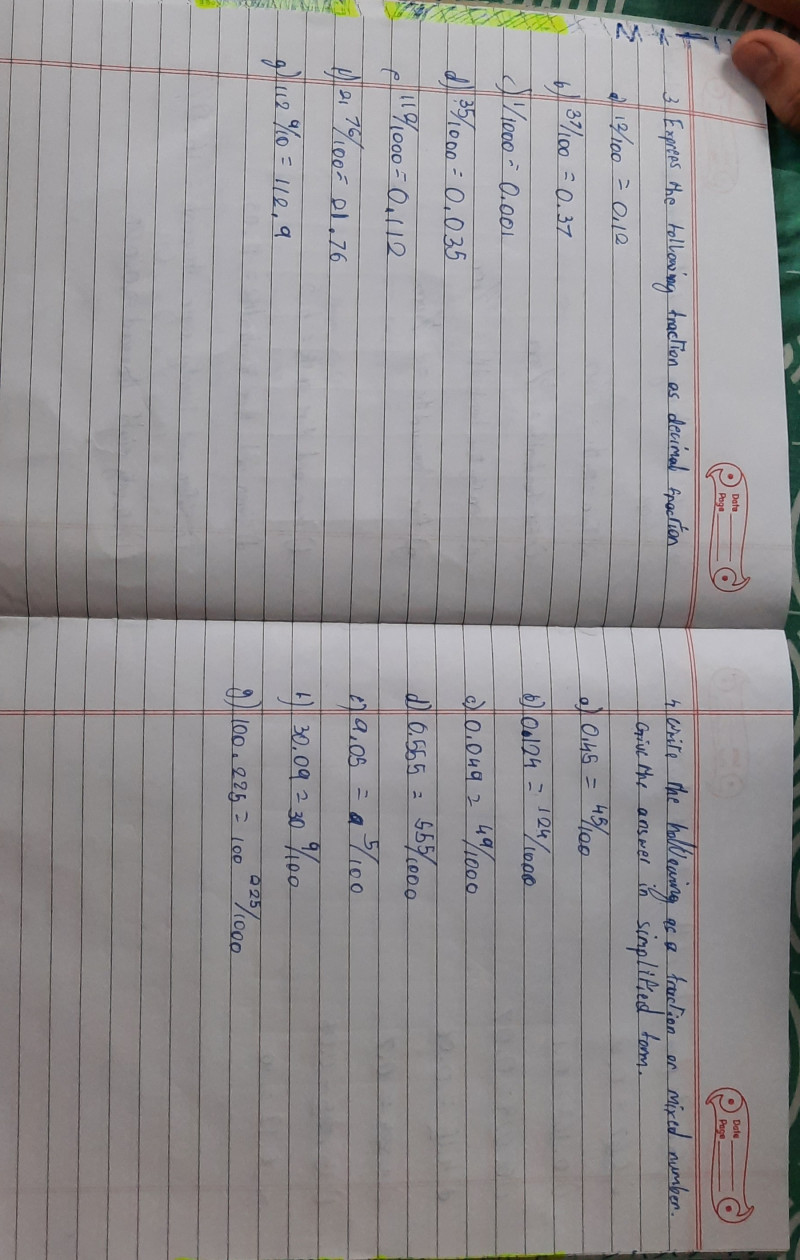 Date
Page
3 Express the following fraction as decimal fraction
a) 12/100 = 0.12
b) 37/100 = 0.37
c) 1/1000 = 0.001
d) 35/1000 = 0.035
e 112/1000 = 0.112
f) 21 76/100 = 21.76
g) 112 9/10 = 112.9
Date
Page
4 write the following as a fraction or mixed number.
Give the answer in simplified form.
a) 0.45 = 45/100
b) 0.124 = 124/1000
c) 0.049 = 49/1000
d) 0.555 = 555/1000
e) 9.05 = 9 5/100
f) 30.09 = 30 9/100
g) 100.225 = 100 225/1000